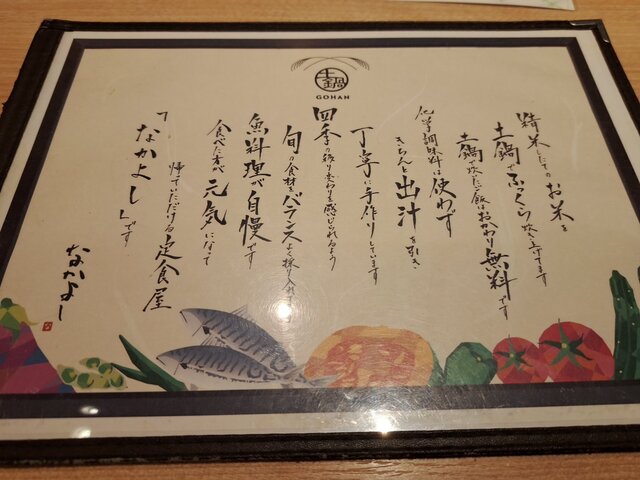 土鍋
GOHAN
精米したてのお米を
土鍋でふっくら炊き上げてます
土鍋で炊いたご飯はおかわり無料です
化学調味料は使わず
きちんと出汁を引き
丁寧に手作りしています
四季の移り変わりを感じられるよう
旬の食材をバランスよく採り入れ
魚料理が自慢です
食べた方が元気になって
帰っていただける定食屋
「なかよし」です
なかよし